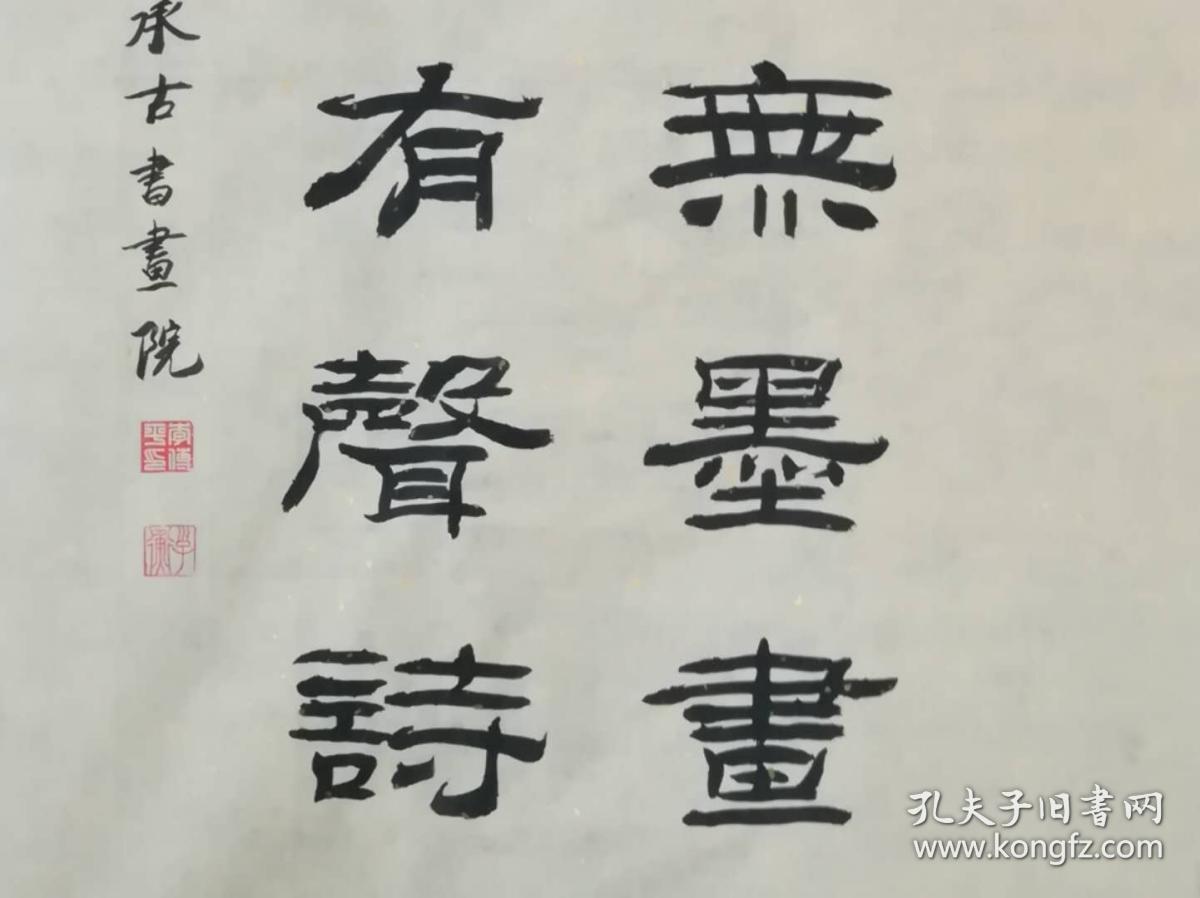 無墨畫
有聲詩
承古書畫院
孔夫子旧书网
www.kongfz.com